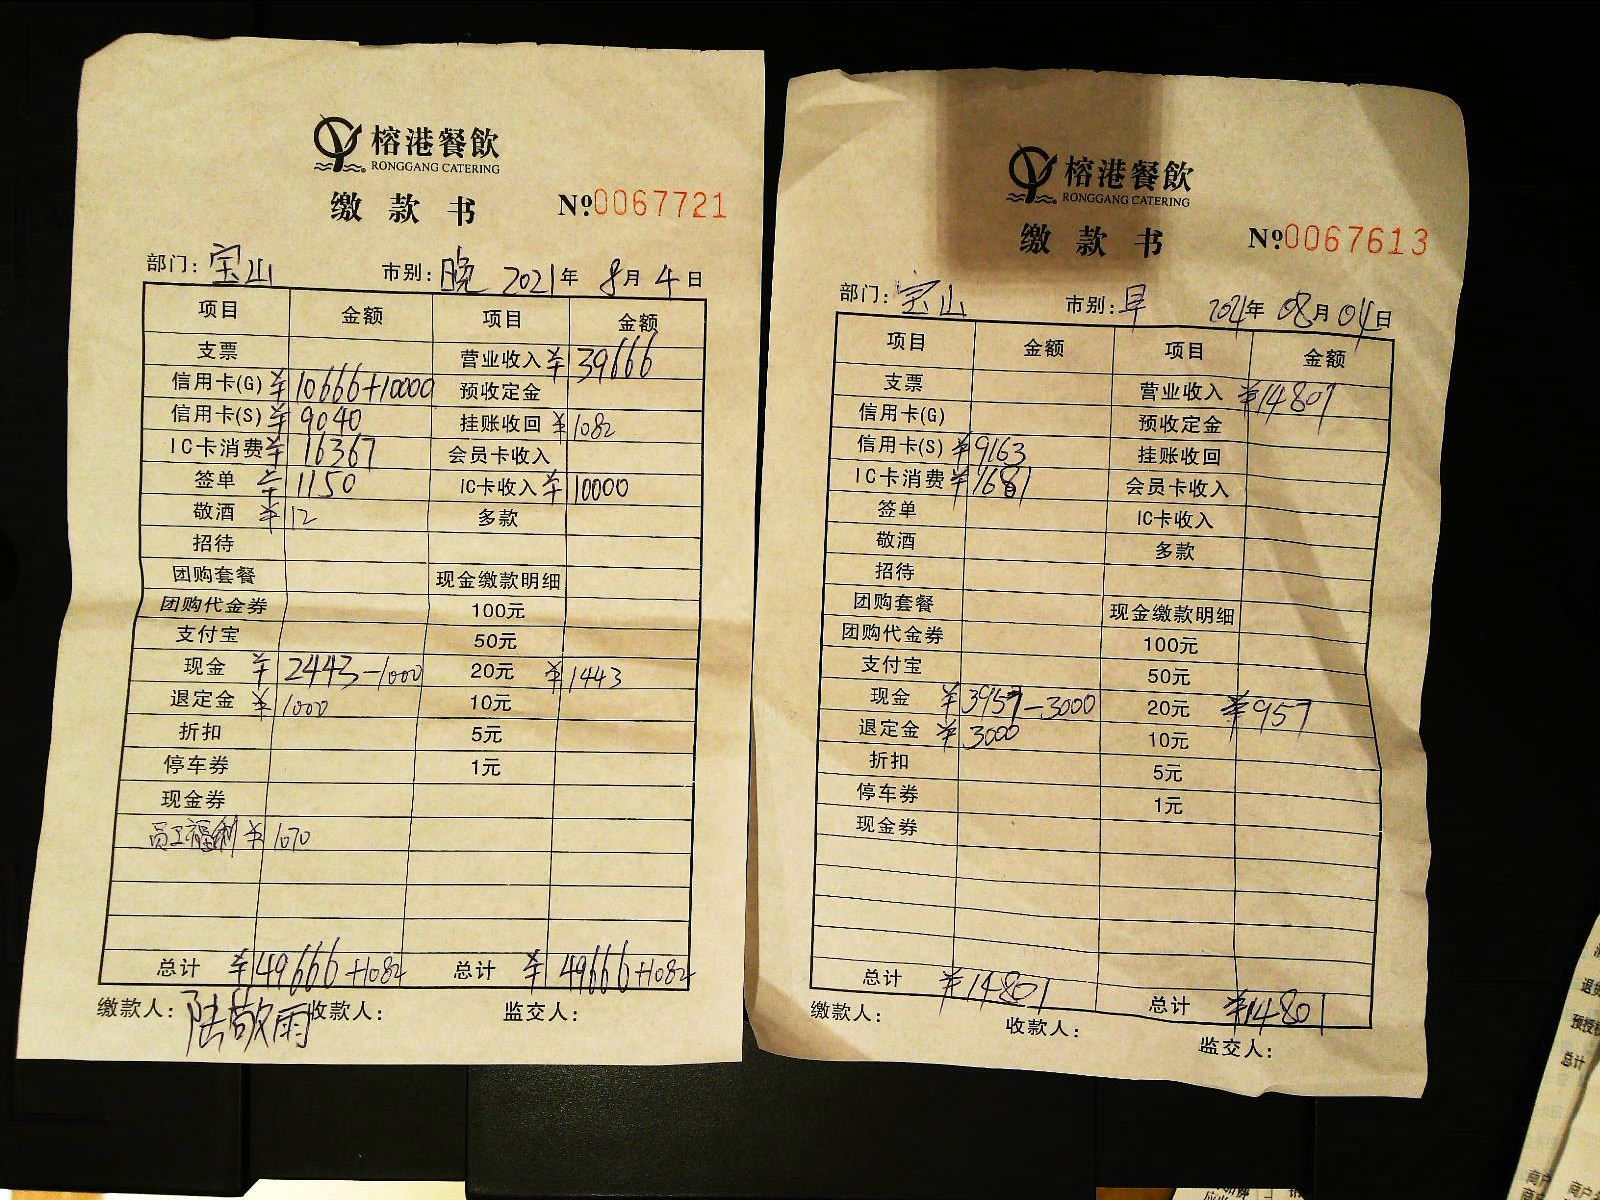 榕港餐飲
RONGGANG CATERING
缴款书 №0067721
部门:宝山 市别:晚 2021年 8月 4日
项目 金额 项目 金额
支票 营业收入 ¥39666
信用卡(G) ¥10666+10000 预收定金
信用卡(S) ¥9040 挂账收回 ¥1082
IC卡消费 ¥16367 会员卡收入
签单 ¥1150 IC卡收入 ¥10000
敬酒 ¥12 多款
招待
团购套餐 现金缴款明细
团购代金券 100元
支付宝 50元
现金 ¥2443-1000 20元 ¥1443
退定金 ¥1000 10元
折扣 5元
停车券 1元
现金券
员工福利 ¥1070
总计 ¥49666+1082 总计 ¥49666+1082
缴款人:陆敬雨 收款人: 监交人:
榕港餐飲
RONGGANG CATERING
缴款书 №0067613
部门:宝山 市别:早 2021年 08月 04日
项目 金额 项目 金额
支票 营业收入 ¥14801
信用卡(G) 预收定金
信用卡(S) ¥9163 挂账收回
IC卡消费 ¥1681 会员卡收入
签单 IC卡收入
敬酒 多款
招待
团购套餐 现金缴款明细
团购代金券 100元
支付宝 50元
现金 ¥3957-3000 20元 ¥957
退定金 ¥3000 10元
折扣 5元
停车券 1元
现金券
总计 ¥14801 总计 ¥14801
缴款人: 收款人: 监交人:
总计